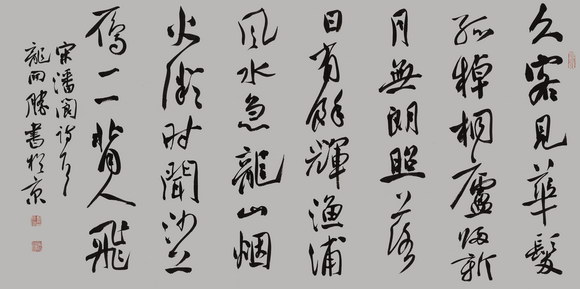 久客見華髮
孤棹桐廬归新
月無朗照落
日有餘輝漁浦
風水急龍山烟
火微时聞沙上
雁一一背人飛
宋潘阆詩
龍開勝書於京